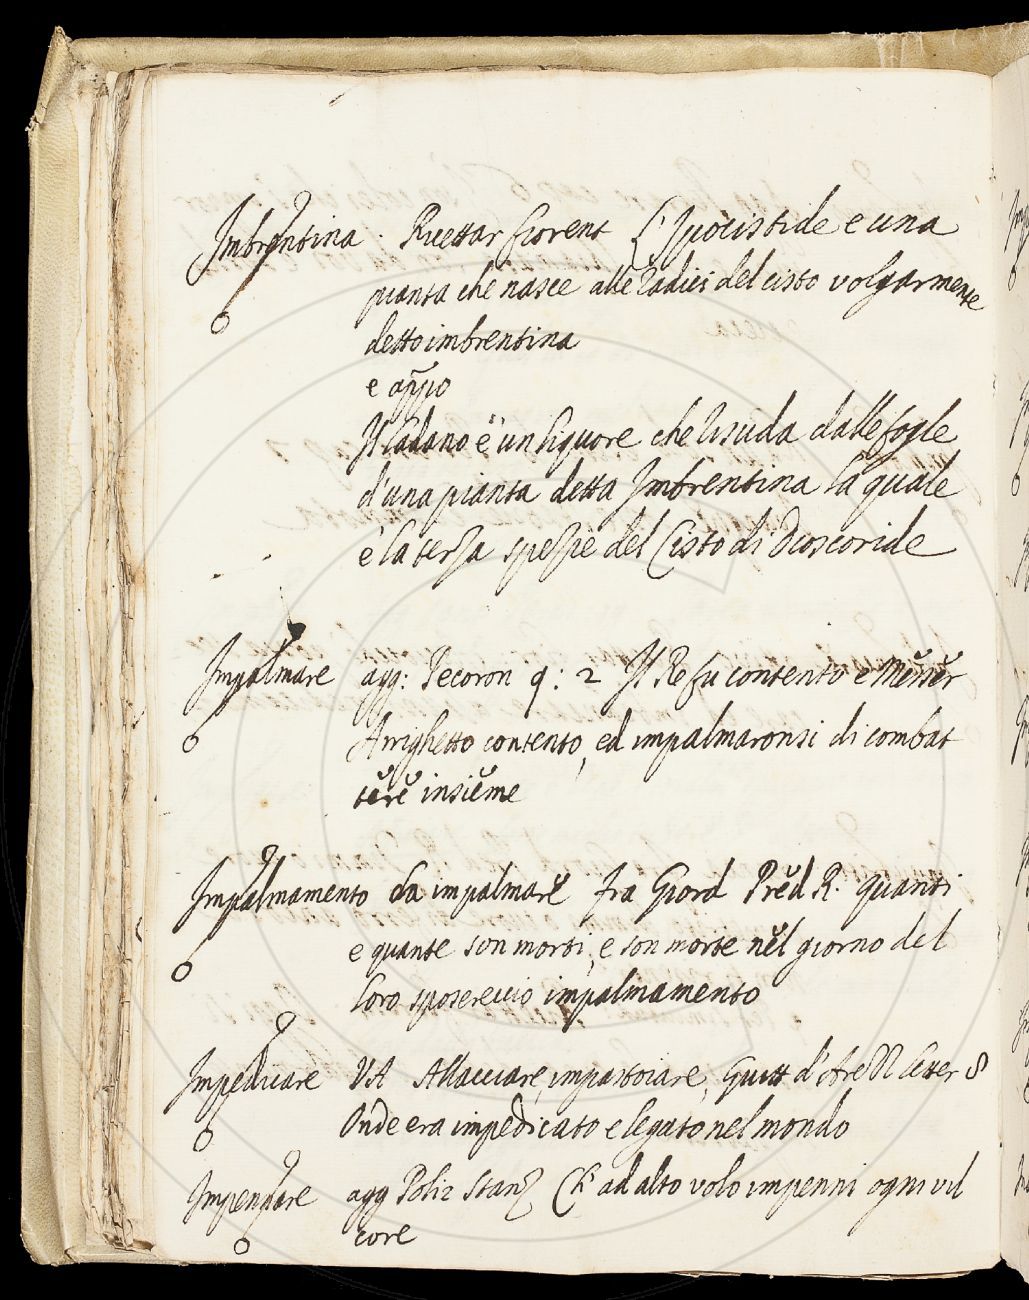 Imbrentina. Ricettar fiorent L'Ipocistide e una
pianta che nasce alle radici del cisto volgarmente
detto imbrentina
e appo
Il ladano è un liquore che risuda dalle fogle
d'una pianta detta Imbrentina la quale
è la terza spezie del Cisto di Dioscoride
Impalmare agg: Pecoron g: 2 Il Re fu contento e Messer
Arrighetto contento, ed impalmaronsi di combat
tere insieme
Impalmamento da impalmare fra Giord Pred R. quanti
e quante son morti, e son morte nel giorno del
loro sposereccio impalmamento
Impedicare VA Allacciare, impastoiare, Guitt d'Arezz letter 8
Onde era impedicato e legato nel mondo
Impennare agg Poliz Stanz Ch' ad alto volo impenni ogni vil
core